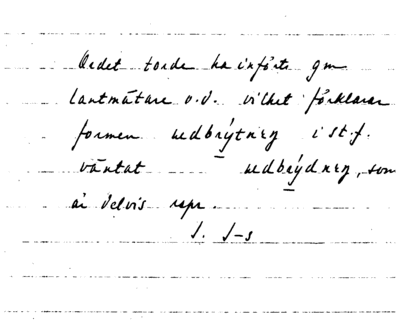 Ordet torde ha införts gm
lantmätare o.d. vilket förklarar
formen uedbrýtnıŋ i st. f.
väntat uedbrýdnıŋ, som
är delvis repr.
J. J-s